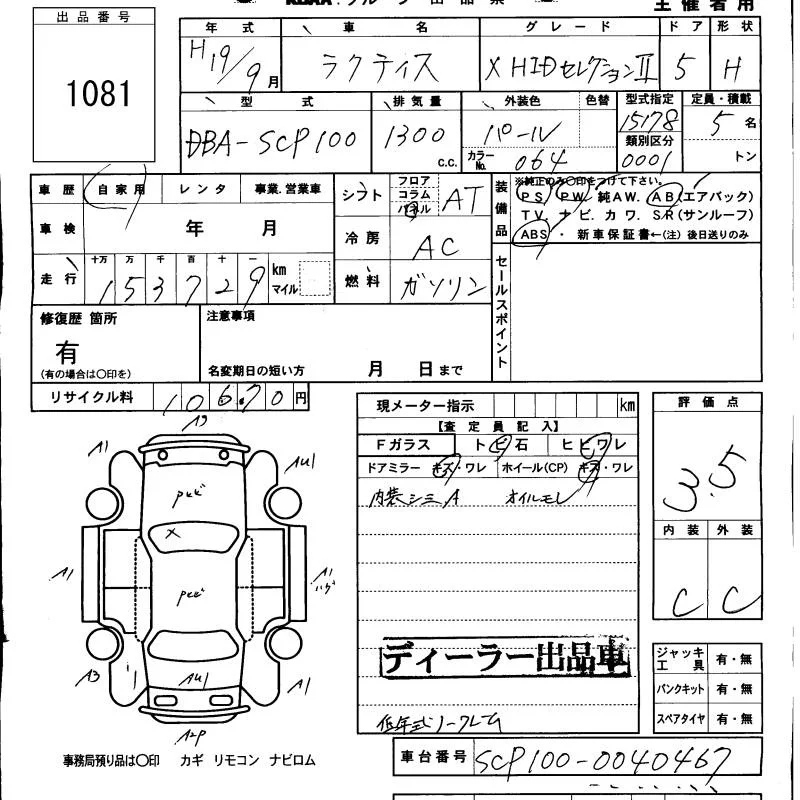 主催者用
出品番号
1081
年式 車名 グレード ドア 形状
H19/9月 ラクティス X HIDセレクションII 5 H
型式 排気量 外装色 色替 型式指定 定員・積載
DBA-SCP100 1300 c.c. パール 15178 5名
カラーNo. 064 類別区分 0001 トン
車歴 自家用 レンタ 事業.営業車
車検 年 月
走行 十万 万 千 百 十 一
153729 km マイル
シフト フロア コラム パネル AT
冷房 AC
燃料 ガソリン
装備品
※純正のみ〇印をつけて下さい。
PS PW 純AW. AB(エアバック)
TV. ナビ. カワ. SR(サンルーフ)
ABS ・ 新車保証書←(注) 後日送りのみ
セールスポイント
修復歴 箇所
有
(有の場合は〇印を)
注意事項
名変期日の短い方 月 日まで
リサイクル料 10670円
現メーター指示 km
【査定員記入】
Fガラス トビ石 ヒビワレ
ドアミラー キズ・ワレ ホイール(CP) キズ・ワレ
内装シミA オイルモレ
ディーラー出品車
低年式ノークレーム
評価点
3.5
内装 外装
C C
ジャッキ工具 有・無
パンクキット 有・無
スペアタイヤ 有・無
A1 A1
AU1
A1 A1
ハゲ
X
A3 AU1 A1
A2P
事務局預り品は〇印 カギ リモコン ナビロム
車台番号 SCP100-0040467